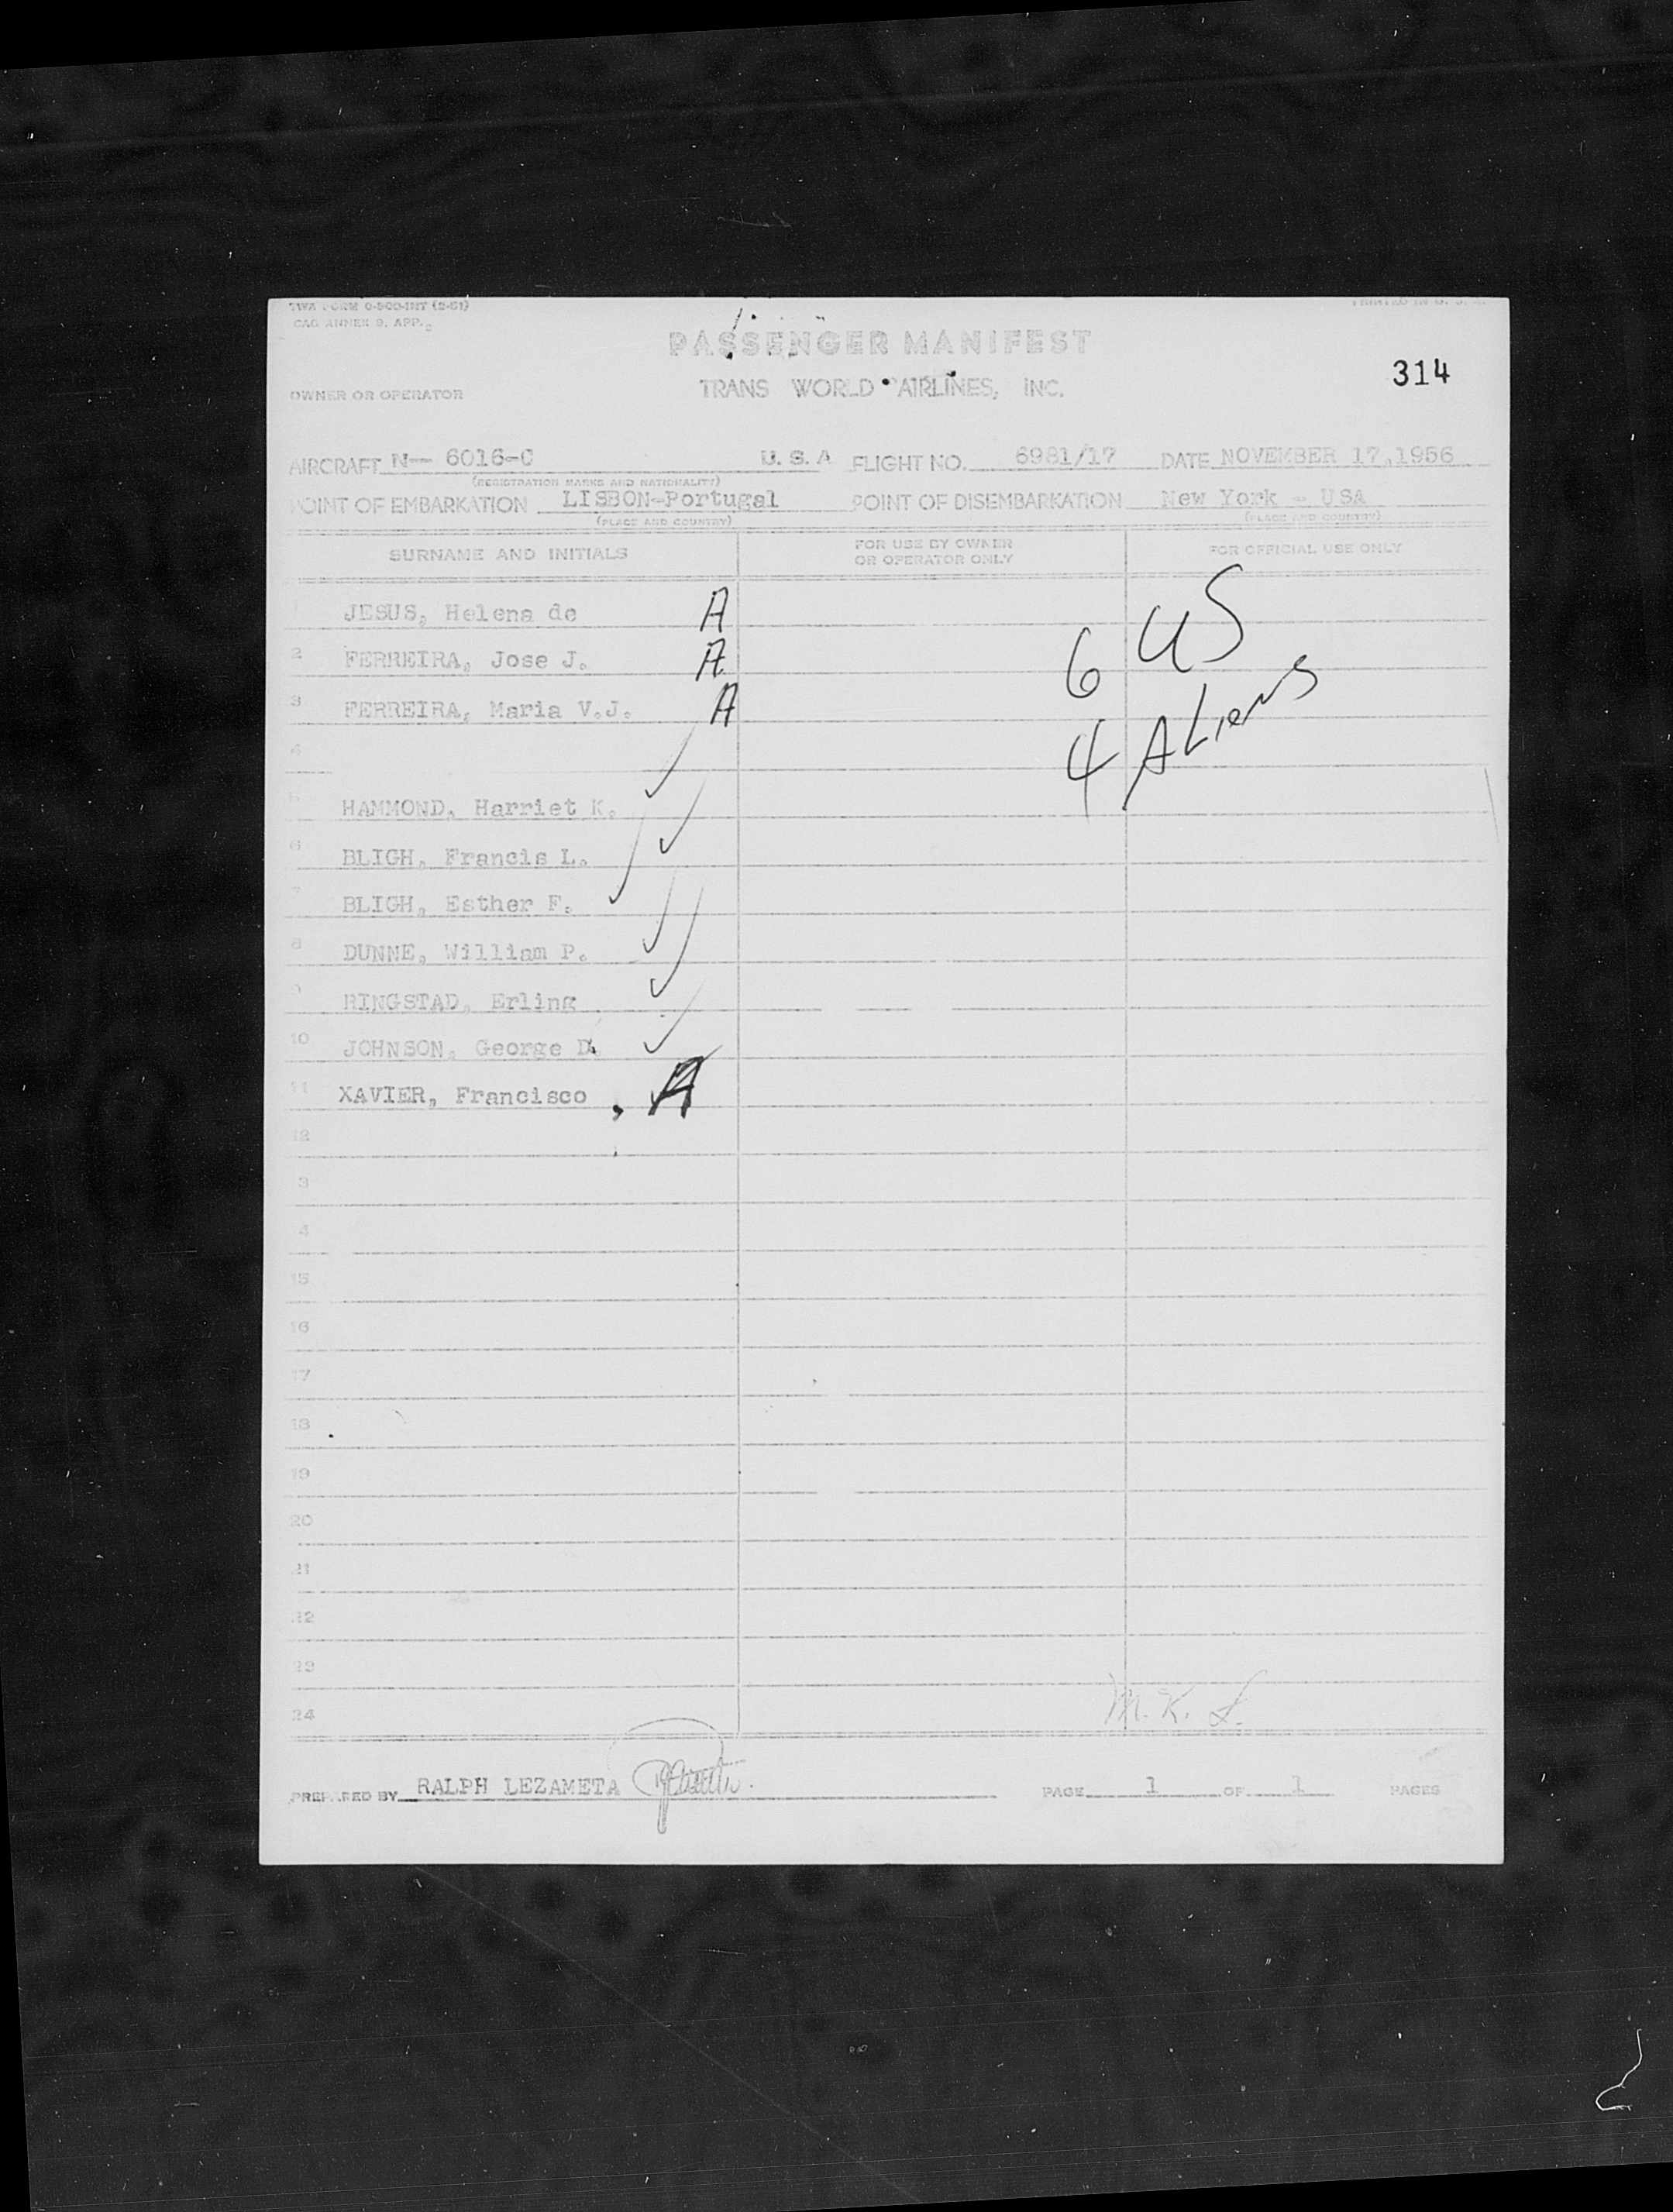 TWA FORM 0-500-INT (2-51)
PRINTED IN U. S. A.
CAO ANNEX 9, APP.
PASSENGER MANIFEST
314
OWNER OR OPERATOR TRANS WORLD AIRLINES, INC.
AIRCRAFT N-- 6016-C U. S. A FLIGHT NO. 6981/17 DATE NOVEMBER 17,1956
(REGISTRATION MARKS AND NATIONALITY)
POINT OF EMBARKATION LISBON-Portugal POINT OF DISEMBARKATION New York - USA
(PLACE AND COUNTRY) (PLACE AND COUNTRY)
SURNAME AND INITIALS FOR USE BY OWNER OR OPERATOR ONLY FOR OFFICIAL USE ONLY
JESUS, Helena de A
6 US
2 FERREIRA, Jose J. A
3 FERREIRA, Maria V.J. A
4 ALiens
4
5 HAMMOND, Harriet K. ✓
6 BLIGH, Francis L. ✓
7 BLIGH, Esther F. ✓
8 DUNNE, William P. ✓
RINGSTAD, Erling ✓
10 JOHNSON, George D. ✓
11 XAVIER, Francisco , A
12
3
4
15
16
17
18
19
20
21
22
23
24
M. K. L.
PREPARED BY RALPH LEZAMETA PAGE 1 OF 1 PAGES